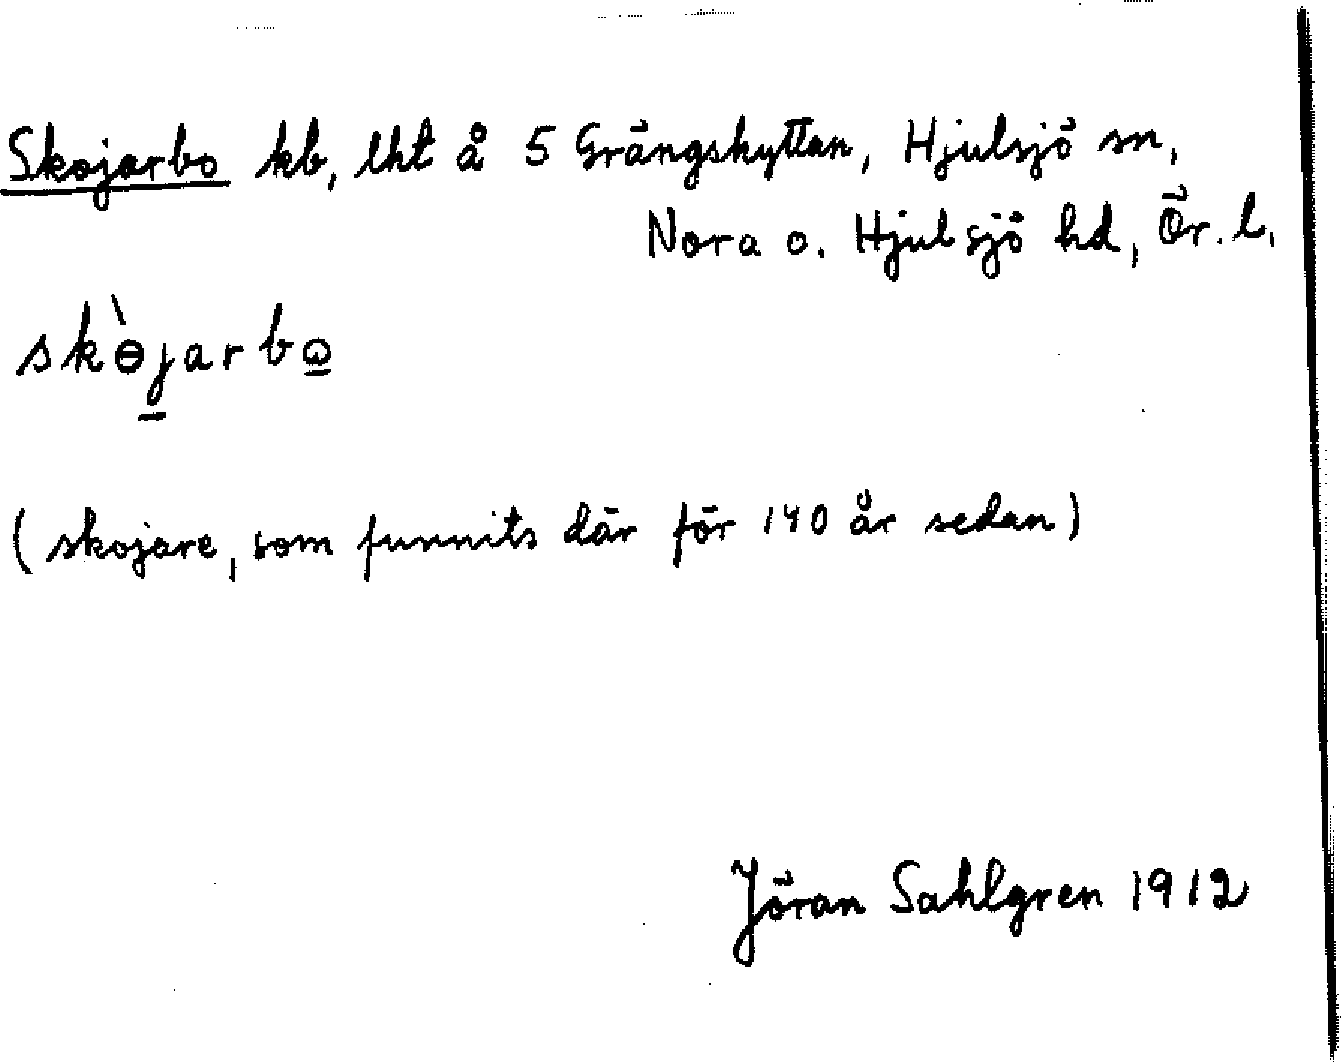 Skojarbo kb, lht å 5 Grängshyttan, Hjulsjö sn,
Nora o. Hjulsjö hd, Ör. l.
skɵ̀jarbɷ
(skojare, som funnits där för 140 år sedan)
Jöran Sahlgren 1912